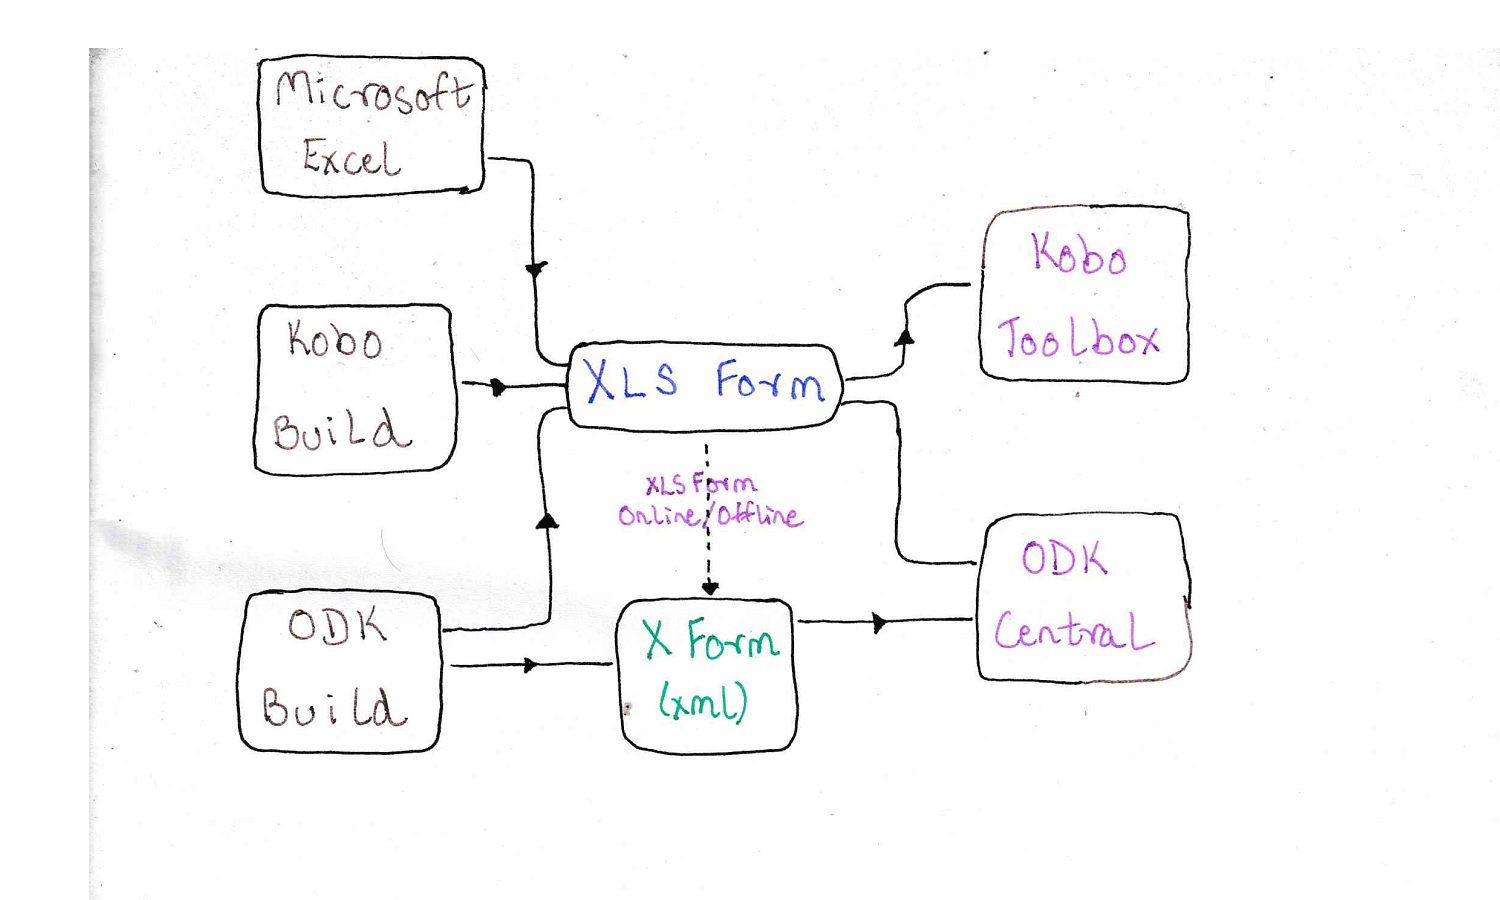 Microsoft
Excel
Kobo
Build
ODK
Build
XLS Form
XLS Form
Online/Offline
X Form
(xml)
Kobo
Toolbox
ODK
Central